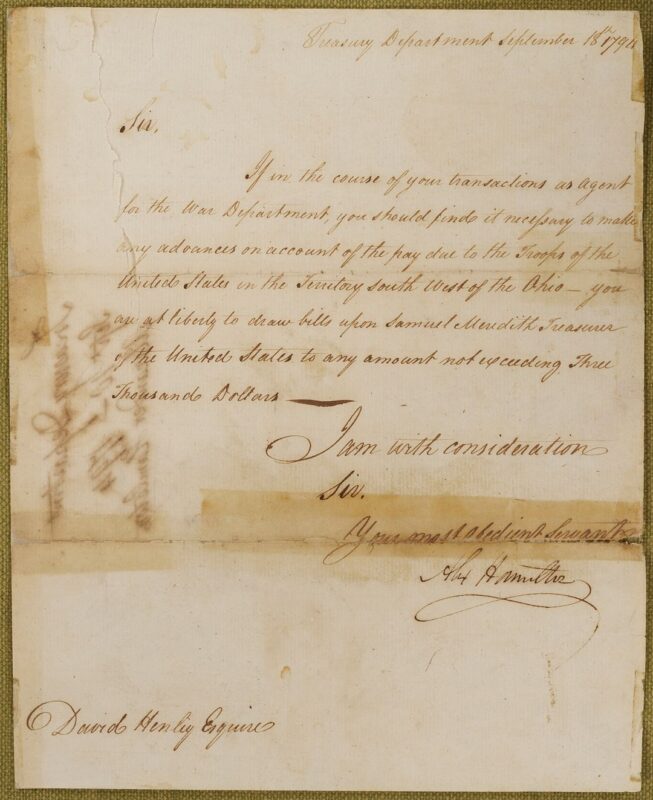 Treasury Department September 18th 1794
Sir,
If in the course of your transactions as agent
for the War Department, you should find it necessary to make
any advances on account of the pay due to the Troops of the
United States in the Territory south West of the Ohio — you
are at liberty to draw bills upon Samuel Meredith Treasurer
of the United States to any amount not exceeding Three
Thousand Dollars —
I am with consideration
Sir.
Your most obedient Servant
Alex Hamilton
David Henley Esquire